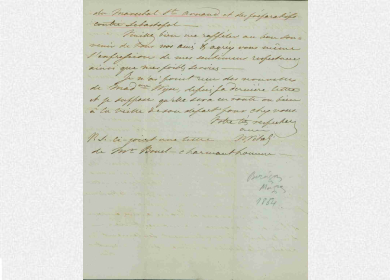 du Marechal St Arnaud et des préparatifs
contre Sebastopol.
Veuillez bien me rappeler au bon sou-
venir de tous vos amis & agréez vous même
l'expression de mes sentiments respectueux
ainsi que mes forts services.
Je n'ai point reçu des nouvelles
de Mad.e depuis sa dernière lettre
et je suppose qu'elle sera en route ou bien
à la veille de son départ pour chez vous.
Votre très respectueux
ami
N.B. ci-joint une lettre
de Mr. Bonet charmant homme
1854